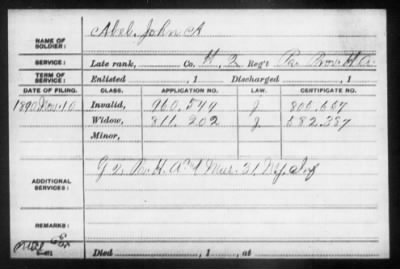 NAME OF SOLDIER: Abel, John A
SERVICE: Late rank, Co. H, 2 Reg't Pa. Prov. H.A.
TERM OF SERVICE: Enlisted , 1 Discharged , 1
DATE OF FILING. CLASS. APPLICATION NO. LAW. CERTIFICATE NO.
1890 Nov. 10 Invalid, 960.544 J 800.667
Widow, 811.202 J 582.387
Minor,
ADDITIONAL SERVICES: G 2 H. A. 31 Inf
REMARKS:
Died , 1 , at